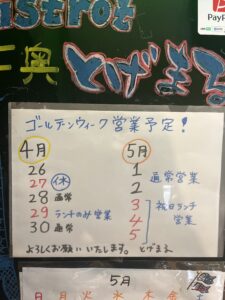 astrot
PayP
奥 とげまる
ゴールデンウィーク営業予定!
4月 5月
26 1
27 休 2 通常営業
28 通常 3
29 ランチのみ営業 4 祝日ランチ営業
30 通常 5
よろしくお願いいたします。 とげまる
5月
日 月 火 水 木 金